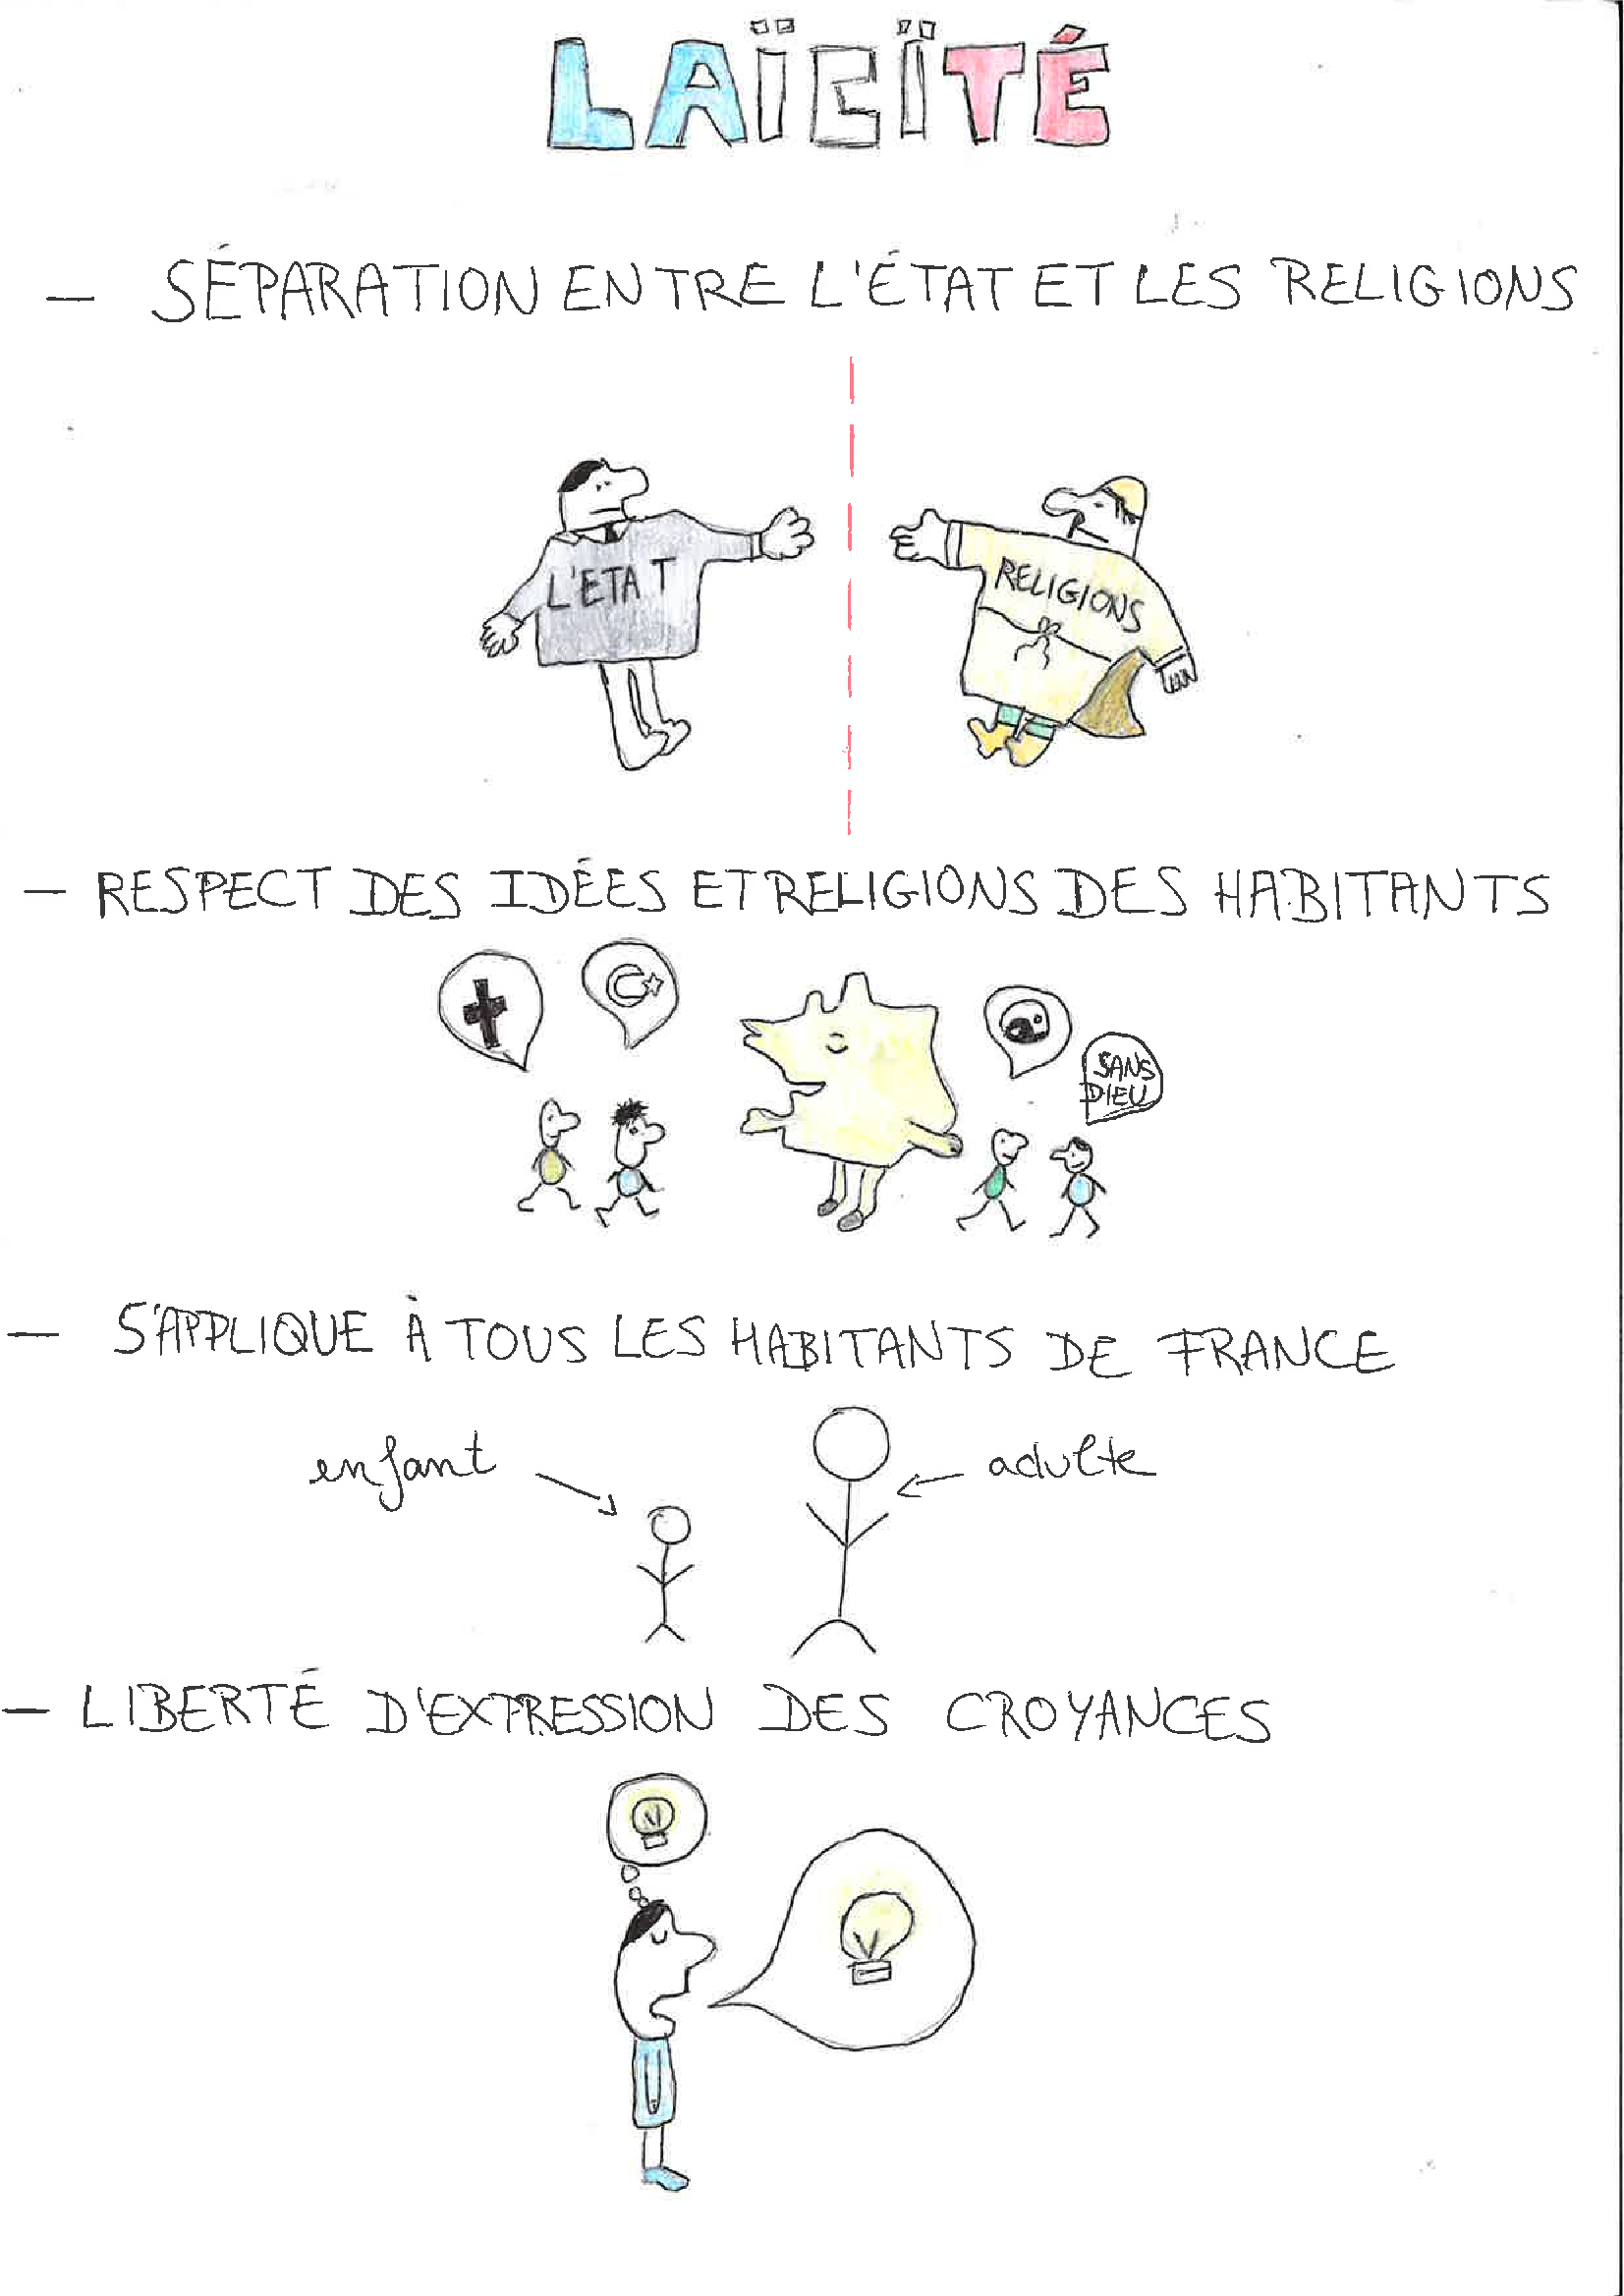 LAÏCÏTÉ
- SÉPARATION ENTRE L'ÉTAT ET LES RELIGIONS
L'ETAT
RELIGIONS
- RESPECT DES IDÉES ET RELIGIONS DES HABITANTS
SANS
DIEU
- S'APPLIQUE À TOUS LES HABITANTS DE FRANCE
enfant
adulte
- LIBERTÉ D'EXPRESSION DES CROYANCES